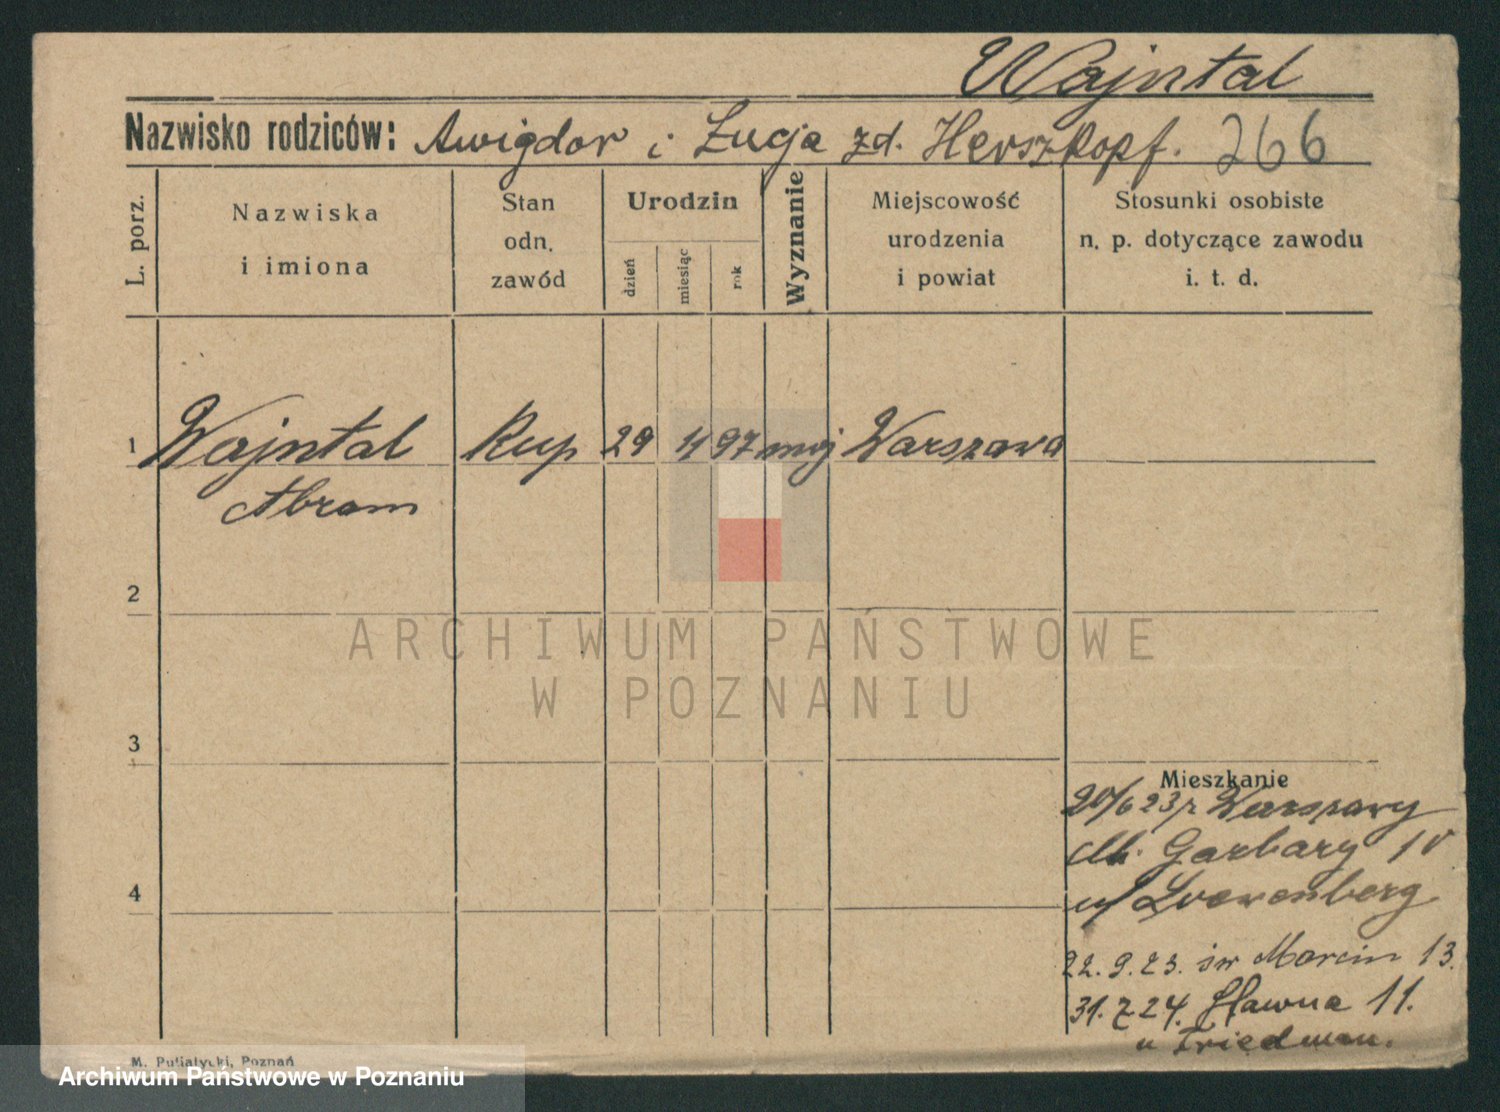 Wajntal
Nazwisko rodziców: Awigdor i Łucja zd. Herszkopf. 266
L. porz.
Nazwiska
i imiona
Stan
odn.
zawód
Urodzin
dzień
miesiąc
rok
Wyznanie
Miejscowość
urodzenia
i powiat
Stosunki osobiste
n. p. dotyczące zawodu
i. t. d.
1 Wajntal kup 29 97 moj Warszawa
Abram
2
ARCHIWUM PAŃSTWOWE
W POZNANIU
3
Mieszkanie
20/6 23 r Warszawy
Garbary
u/ Loewenberg
4
22. 9. 23. św Marcin 13.
31. 7. 24. Sławna 11.
u Friedman.
M. Putiatycki, Poznań
Archiwum Państwowe w Poznaniu